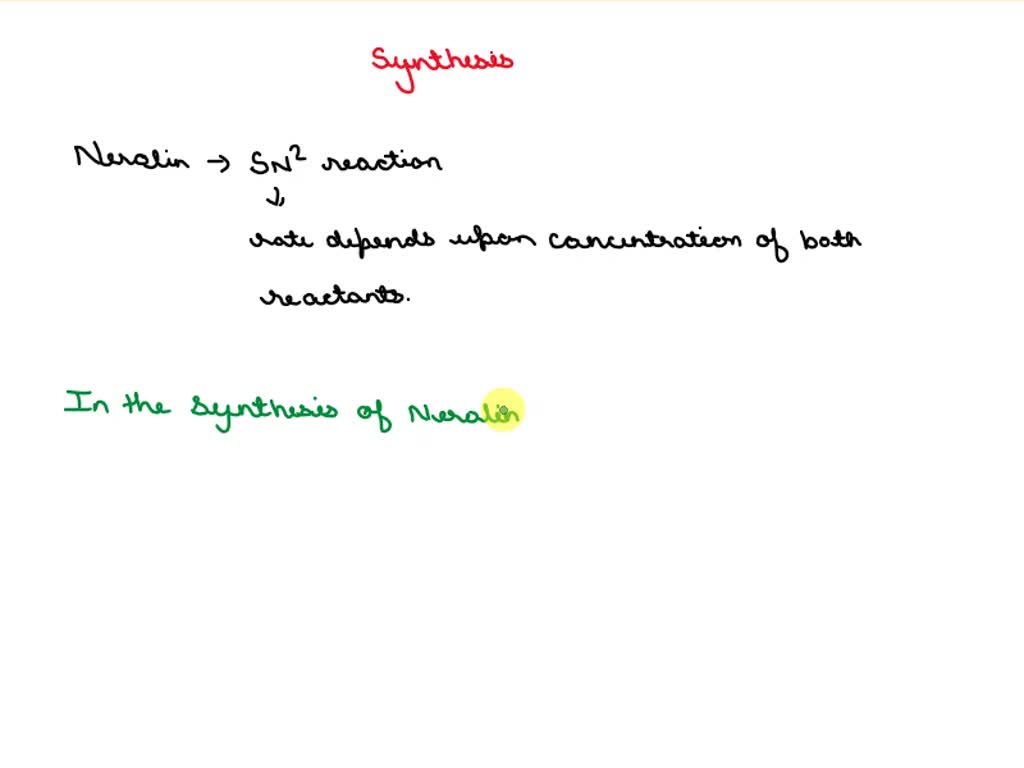 Synthesis
Neralin → SN² reaction
↓
rate depends upon concentration of both
reactants.
In the synthesis of Neralin